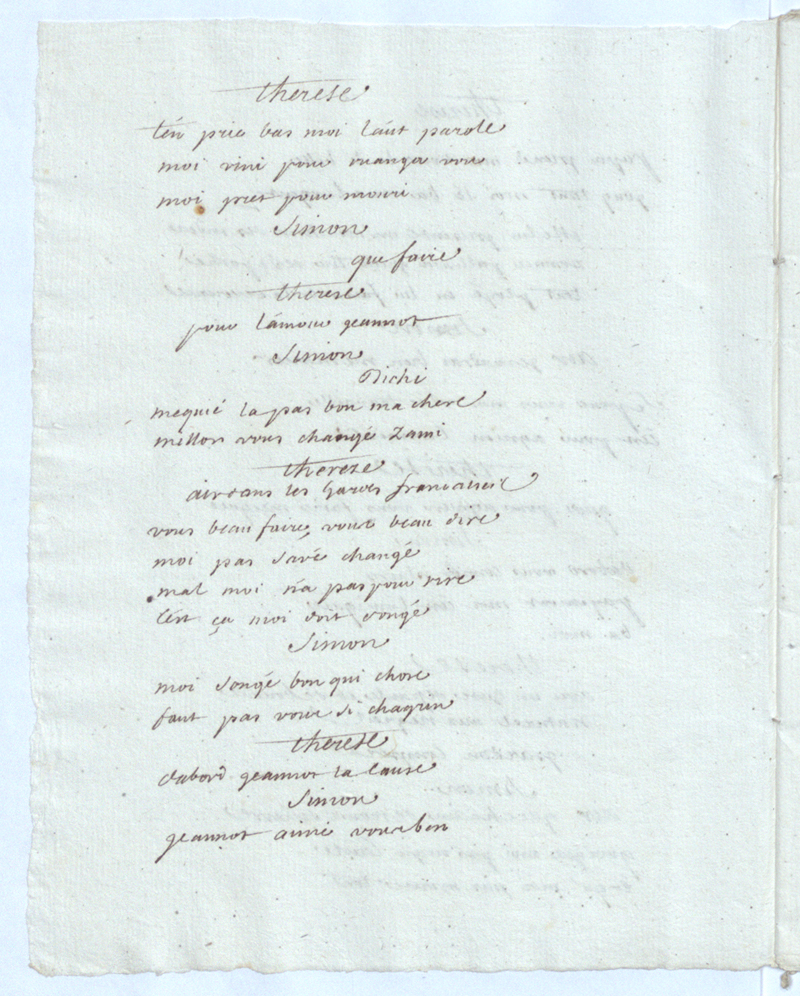 therese
t'en prie bas moi l'aut parole
moi vini pour mangér vou
moi pret pour mouri
Simon
que faire
therese
pour l'amour geannot
Simon
Dichi
mequié la pas bon ma chere
meillor vous changé Zami
therese
air dans les Gardes francaises
vous beau faire, vous beau dire
moi pas savé changé
mal moi n'a pas pour rire
c'est ça moi doit songé
Simon
moi songé bon qui chose
faut pas vous si chagrin
therese
d'abord geannot la cause
Simon
geannot aimé vous ben